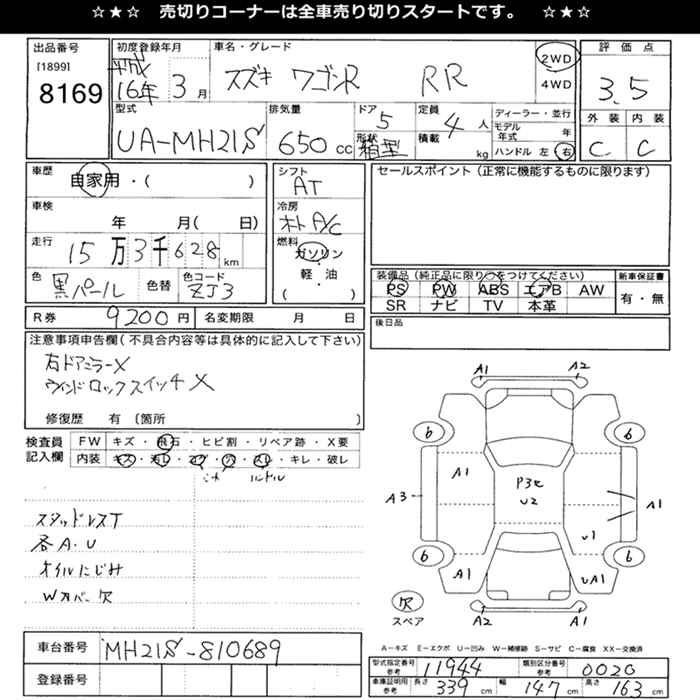 ☆★☆ 売切りコーナーは全車売り切りスタートです。 ☆★☆
出品番号 初度登録年月 車名・グレード 評価点
[1899] 平成 2WD
8169 16年 3月 スズキ ワゴンR RR 4WD 3.5
型式 排気量 ドア 定員 ディーラー・並行 外装 内装
UA-MH21S 650cc 5 4人 モデル年式 年 C C
形状 箱型 積載 kg ハンドル 左 右
車歴 シフト セールスポイント(正常に機能するものに限ります)
自家用・( ) AT
車検 冷房
年 月( 日) オートA/C
走行 燃料
15万3千628km ガソリン
色 色替 色コード 軽・油 装備品(純正品に限り○をつけてください) 新車保証書
黒パール ZJ3 ( ) PS PW ABS エアB AW 有・無
SR ナビ TV 本革
R券 9200円 名変期限 月 日 後日品
注意事項申告欄(不具合内容等は具体的に記入して下さい)
右ドアミラーX
ウインドロックスイッチX
修復歴 有 〔箇所 〕
検査員 FW キズ・飛石・ヒビ割・リペア跡・X要
記入欄 内装 キズ・汚レ・コゲ・穴・スレ・キレ・破レ
ハンドル
スタッドレスT
各A.U
オイルにじみ
Wカバー欠
A1 A2
6 6
A1
A3 P3セ A1
U2
U1
6 6
A1 UA1
欠
スペア A2 A1
A-キズ E-エクボ U-凹み W-補修跡 S-サビ C-腐食 XX-交換済
車台番号 MH21S-810689
登録番号
型式指定番号 参考 11944 類別区分番号 参考 0020
車庫証明用 参考 長さ 339cm 幅 147cm 高さ 163cm